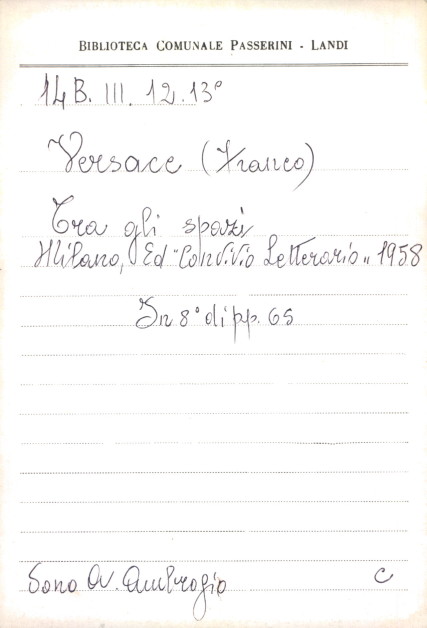 BIBLIOTECA COMUNALE PASSERINI - LANDI
14 B. III. 12.13°
Versace (Franco)
Tra gli spazi
Milano, Ed "Convivio Letterario" 1958
In 8° di pp. 65
Dono Av. Ambrogio C